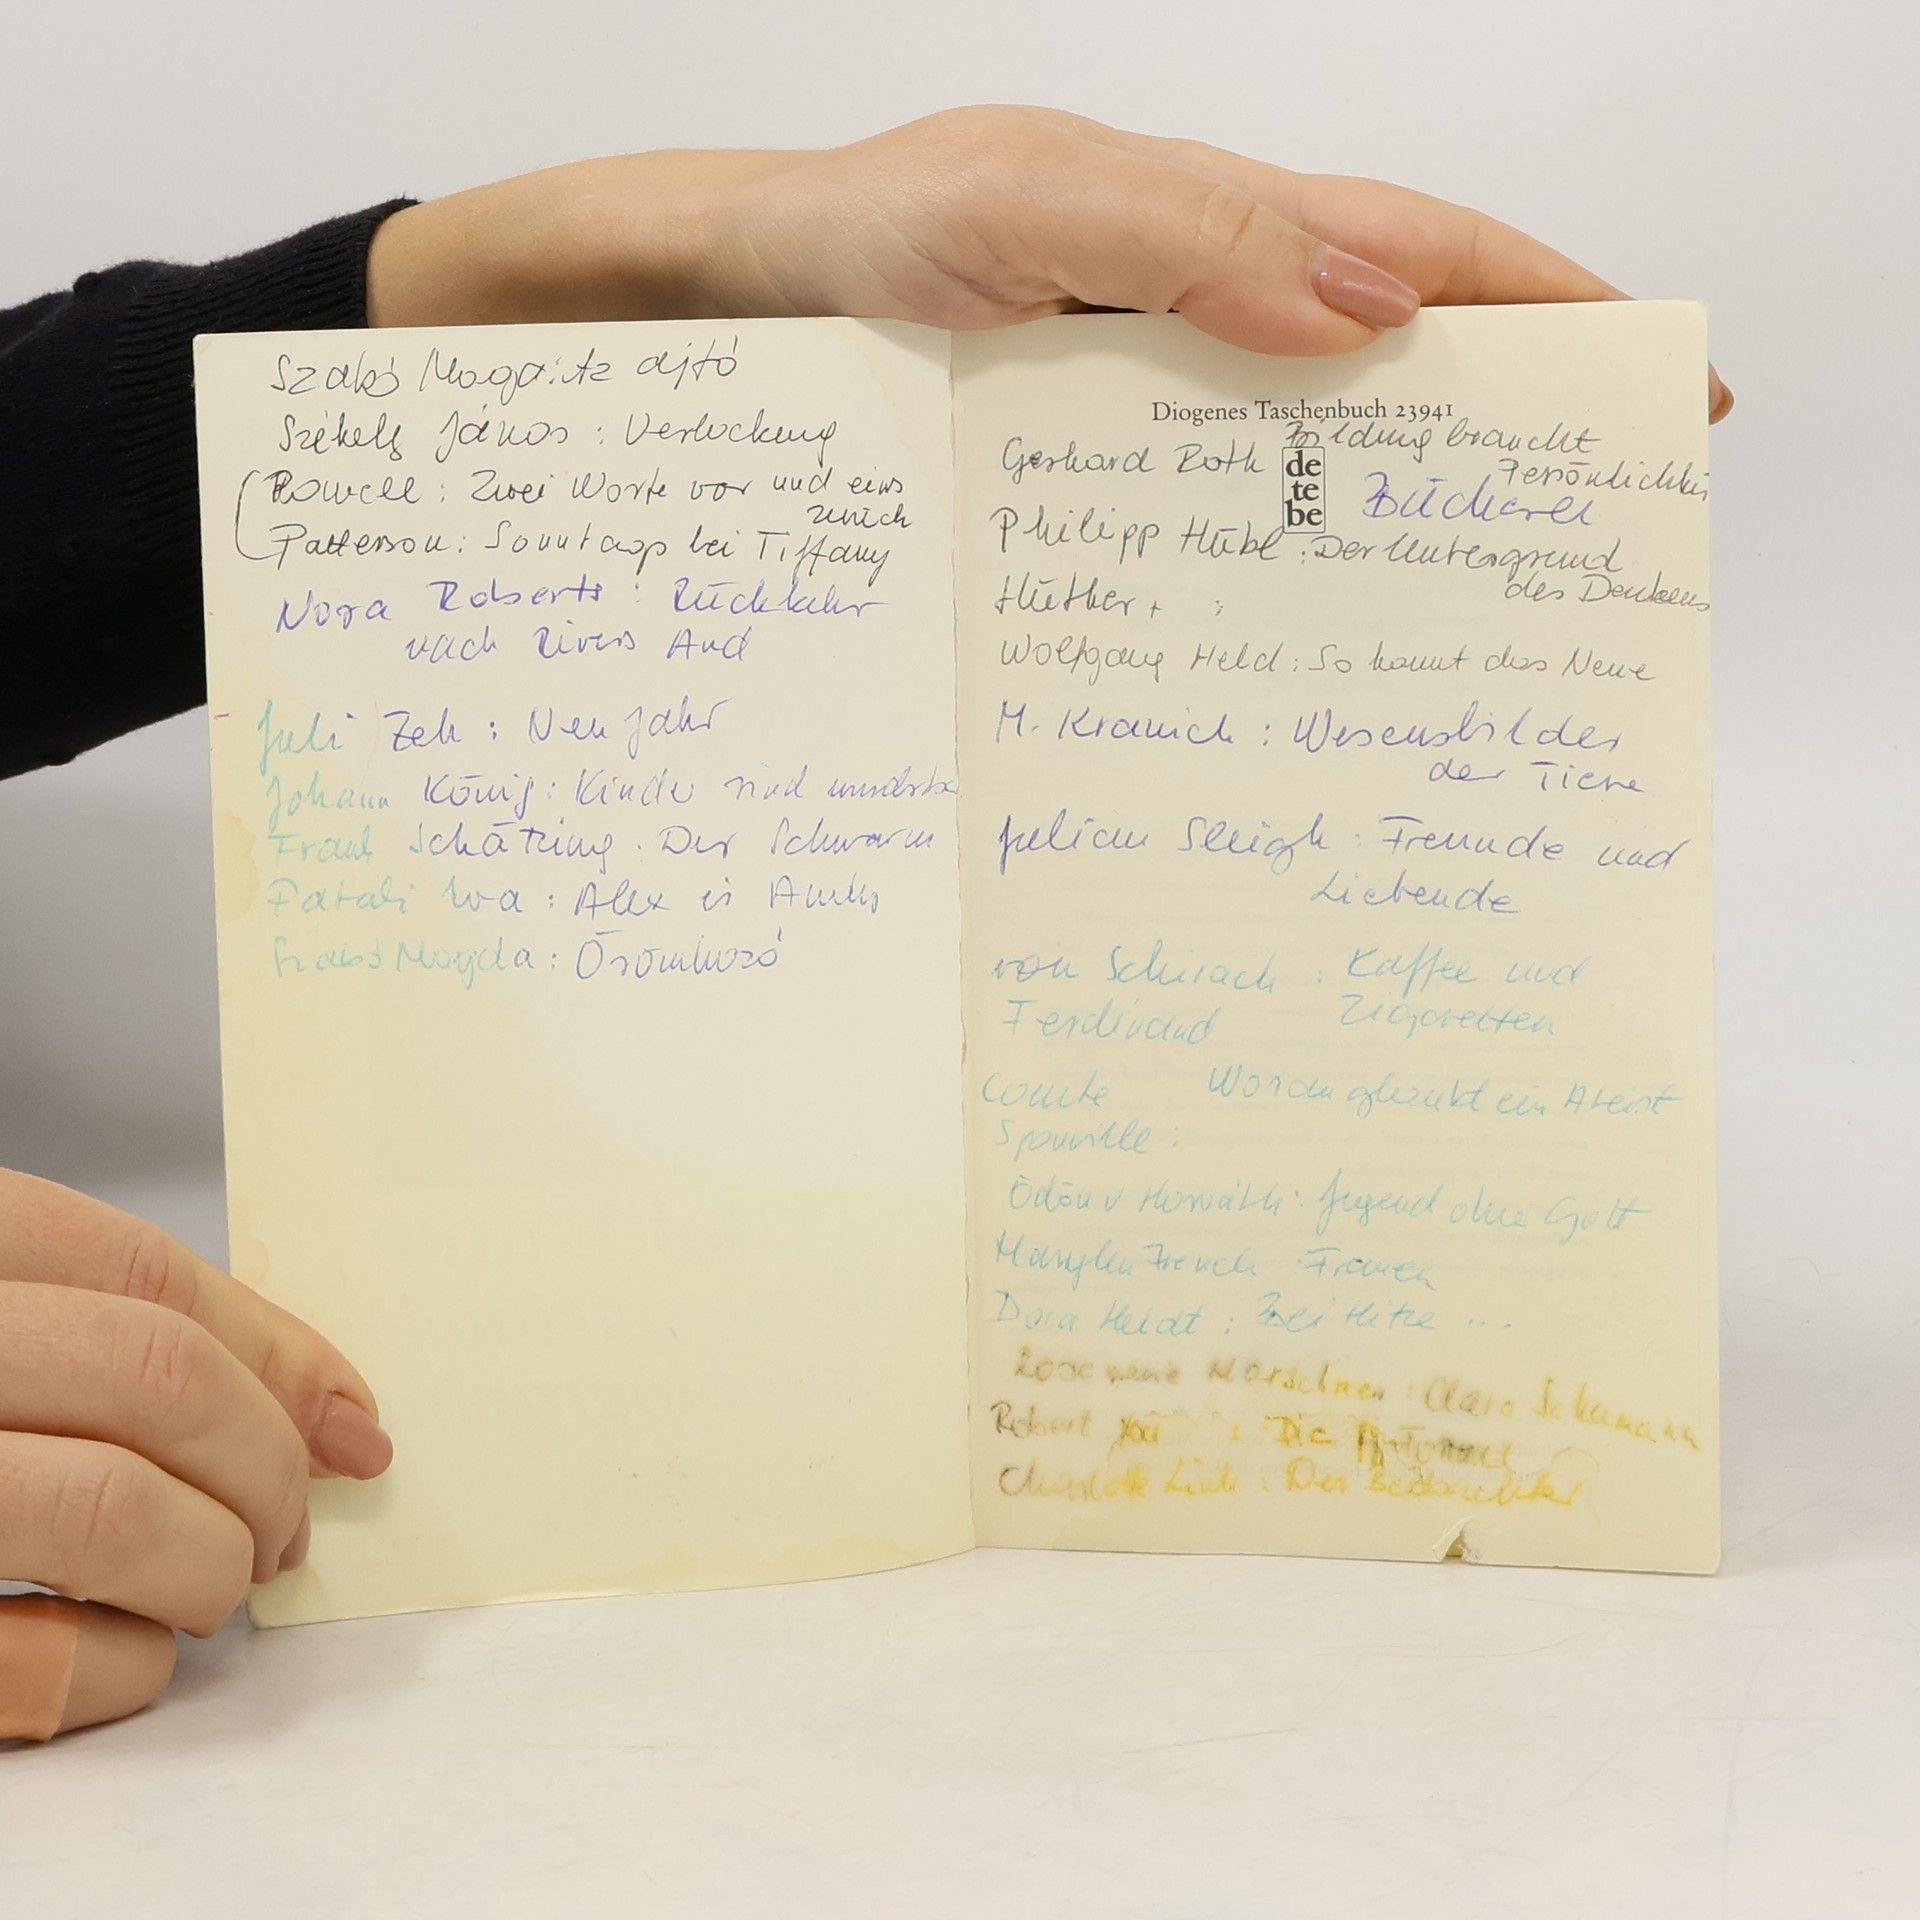 Szabó Magda: Az ajtó
Székely János: Verlockung
Rowell: Zwei Worte vor und eins
zurück
Patterson: Sonntags bei Tiffany
Nora Roberts: Rückkehr
nach Rivers And
Juli Zeh: Neujahr
Johann König: Kinder sind
Frank Schätzing. Der Schwarm
Pataki Éva: Alex
Szabó Magda:
Diogenes Taschenbuch 23941
Gerhard Roth Bildung braucht
Persönlichkei
de
te
be
Bücherei
Philipp Hübl: Der Untergrund
des Denkens
Hüther + :
Wolfgang Held: So kommt das Neue
M. Kranich: Wesensbilder
der Tiere
Julian Sleigh: Freunde und
Liebende
von Schirach: Kaffee und
Ferdinand Zigaretten
Comte Woran glaubt ein Ateist
Sponville:
Ödön v Horváth: Jugend ohne Gott
Marylin French: Frauen
Dora Heldt: Bei Hitze ...
Rosemarie Marschner: Clara Schumann
Robert : Die
Charlotte Link: Der Beobachter